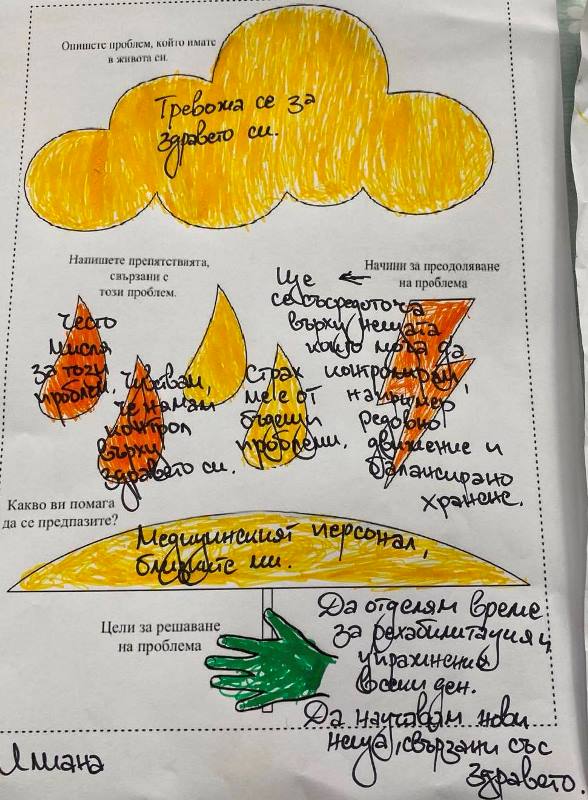 Опишете проблем, който имате
в живота си.
Тревожа се за
здравето си.
Напишете препятствията,
свързани с
този проблем.
Често
мисля
за този
проблем
Чувствам,
че нямам
контрол
върху
здравето си.
Страх
ме е от
бъдещи
проблеми.
Начини за преодоляване
на проблема
Ще ←
се съсредоточа
върху нещата
които мога да
контролирам
например,
редовно
движение и
балансирано
хранене.
Какво ви помага
да се предпазите?
Медицинският персонал,
близките ми.
Цели за решаване
на проблема
Да отделям време
за рехабилитация и
упражнения
всеки ден.
Да научавам нови
неща, свързани със
здравето.
Лиана